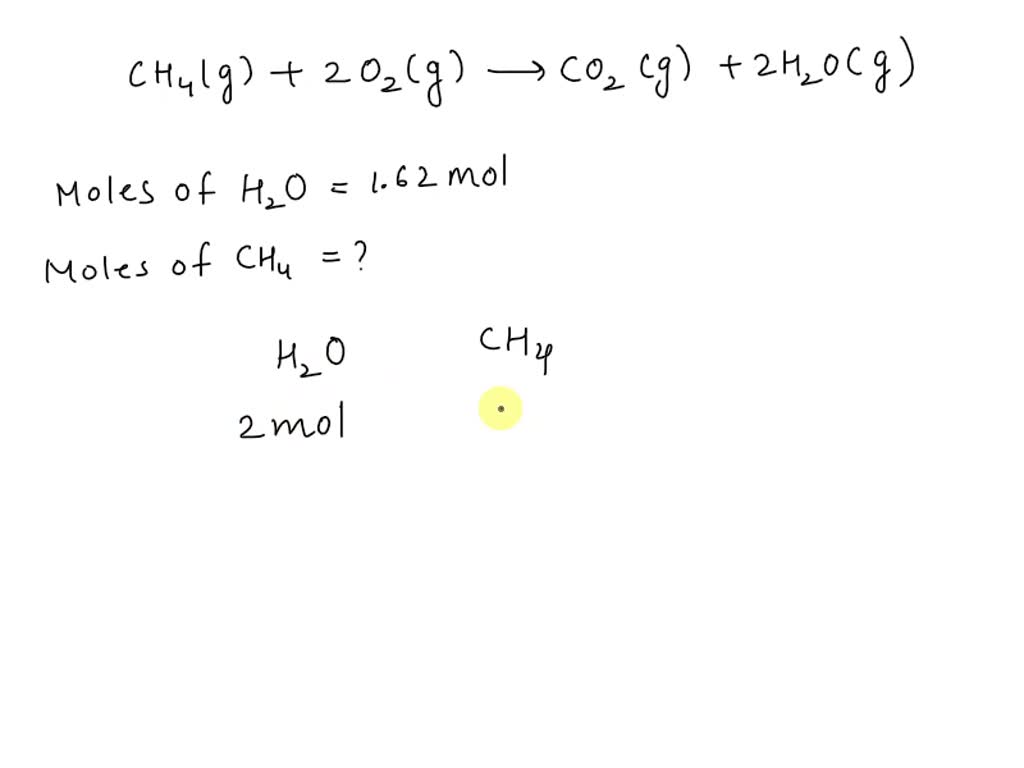 CH₄(g) + 2O₂(g) → CO₂(g) + 2H₂O(g)
Moles of H₂O = 1.62 mol
Moles of CH₄ = ?
H₂O CH₄
2 mol